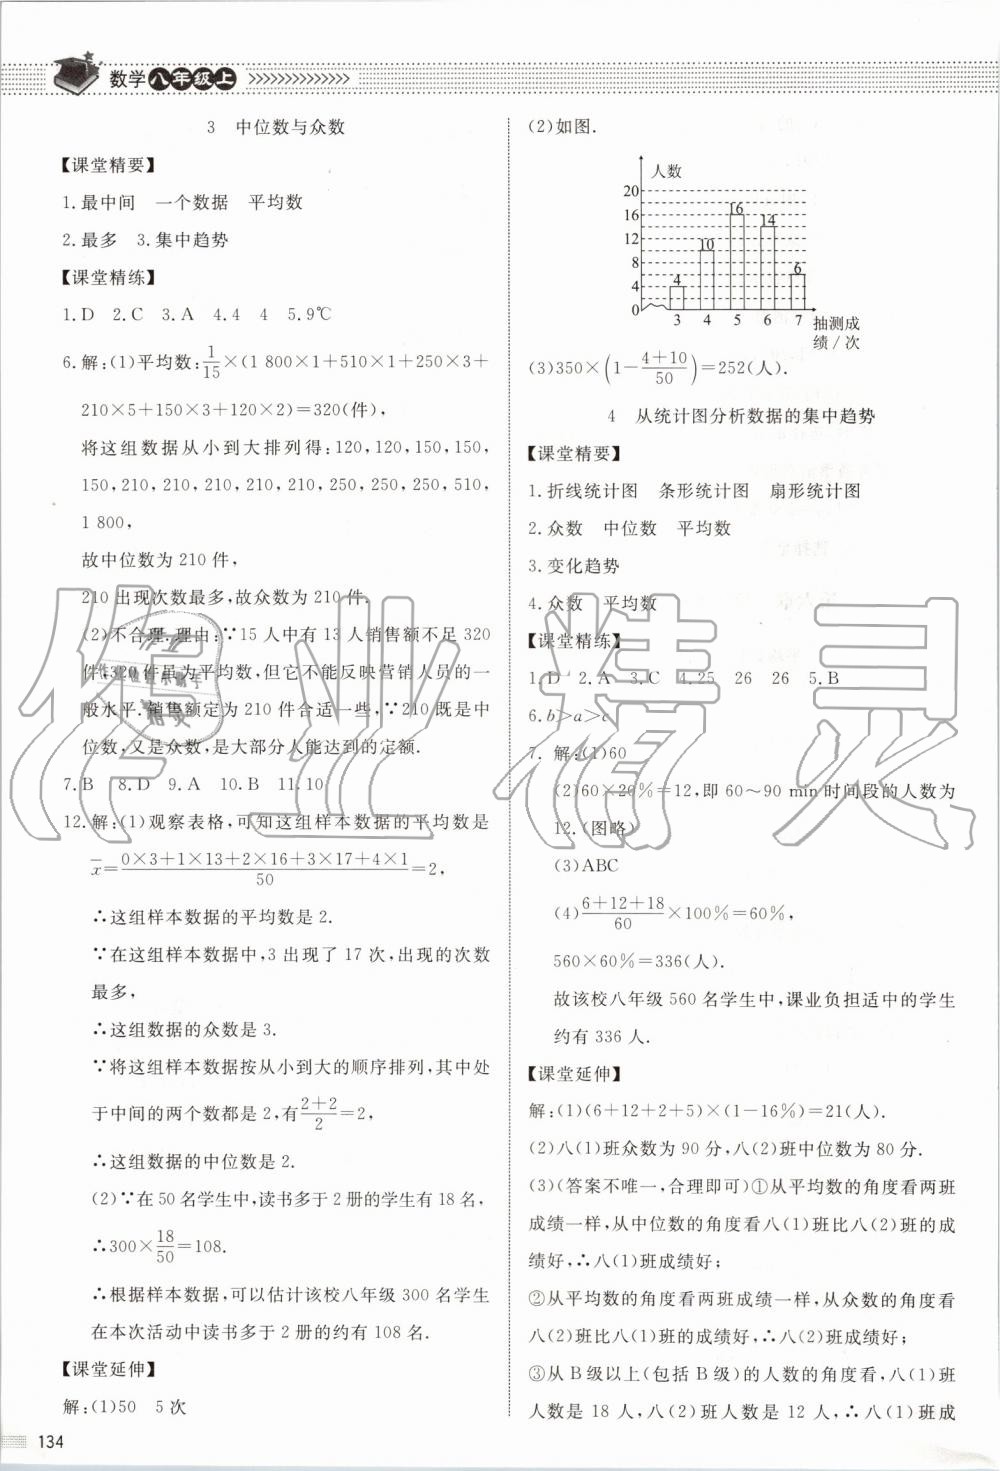 数学八年级上
3 中位数与众数
【课堂精要】
1.最中间 一个数据 平均数
2.最多 3.集中趋势
【课堂精练】
1.D 2.C 3.A 4.4 4 5.9℃
6.解:(1)平均数:1/15×(1 800×1+510×1+250×3+
210×5+150×3+120×2)=320(件),
将这组数据从小到大排列得:120,120,150,150,
150,210,210,210,210,210,250,250,250,510,
1 800,
故中位数为 210 件,
210 出现次数最多,故众数为 210 件.
(2)不合理.理由:∵15 人中有 13 人销售额不足 320
件,320 件虽为平均数,但它不能反映营销人员的一
般水平.销售额定为 210 件合适一些,∵210 既是中
位数,又是众数,是大部分人能达到的定额.
7.B 8.D 9.A 10.B 11.10
12.解:(1)观察表格,可知这组样本数据的平均数是
x̄=(0×3+1×13+2×16+3×17+4×1)/50=2,
∴这组样本数据的平均数是 2.
∵在这组样本数据中,3 出现了 17 次,出现的次数
最多,
∴这组数据的众数是 3.
∵将这组样本数据按从小到大的顺序排列,其中处
于中间的两个数都是 2,有(2+2)/2=2,
∴这组数据的中位数是 2.
(2)∵在 50 名学生中,读书多于 2 册的学生有 18 名,
∴300×18/50=108.
∴根据样本数据,可以估计该校八年级 300 名学生
在本次活动中读书多于 2 册的约有 108 名.
【课堂延伸】
解:(1)50 5 次
134
(2)如图.
人数
20
16
12
8
4
0
4
10
16
14
6
3 4 5 6 7
抽测成
绩/次
(3)350×(1-(4+10)/50)=252(人).
4 从统计图分析数据的集中趋势
【课堂精要】
1.折线统计图 条形统计图 扇形统计图
2.众数 中位数 平均数
3.变化趋势
4.众数 平均数
【课堂精练】
1.D 2.A 3.C 4.25 26 26 5.B
6.b>a>c
7.解:(1)60
(2)60×20%=12,即 60~90 min 时间段的人数为
12.(图略)
(3)ABC
(4)(6+12+18)/60×100%=60%,
560×60%=336(人).
故该校八年级 560 名学生中,课业负担适中的学生
约有 336 人.
【课堂延伸】
解:(1)(6+12+2+5)×(1-16%)=21(人).
(2)八(1)班众数为 90 分,八(2)班中位数为 80 分.
(3)(答案不唯一,合理即可)①从平均数的角度看两班
成绩一样,从中位数的角度看八(1)班比八(2)班的成
绩好,∴八(1)班成绩好;
②从平均数的角度看两班成绩一样,从众数的角度看
八(2)班比八(1)班的成绩好,∴八(2)班成绩好;
③从 B 级以上(包括 B 级)的人数的角度看,八(1)班
人数是 18 人,八(2)班人数是 12 人,∴八(1)班成
作业精灵